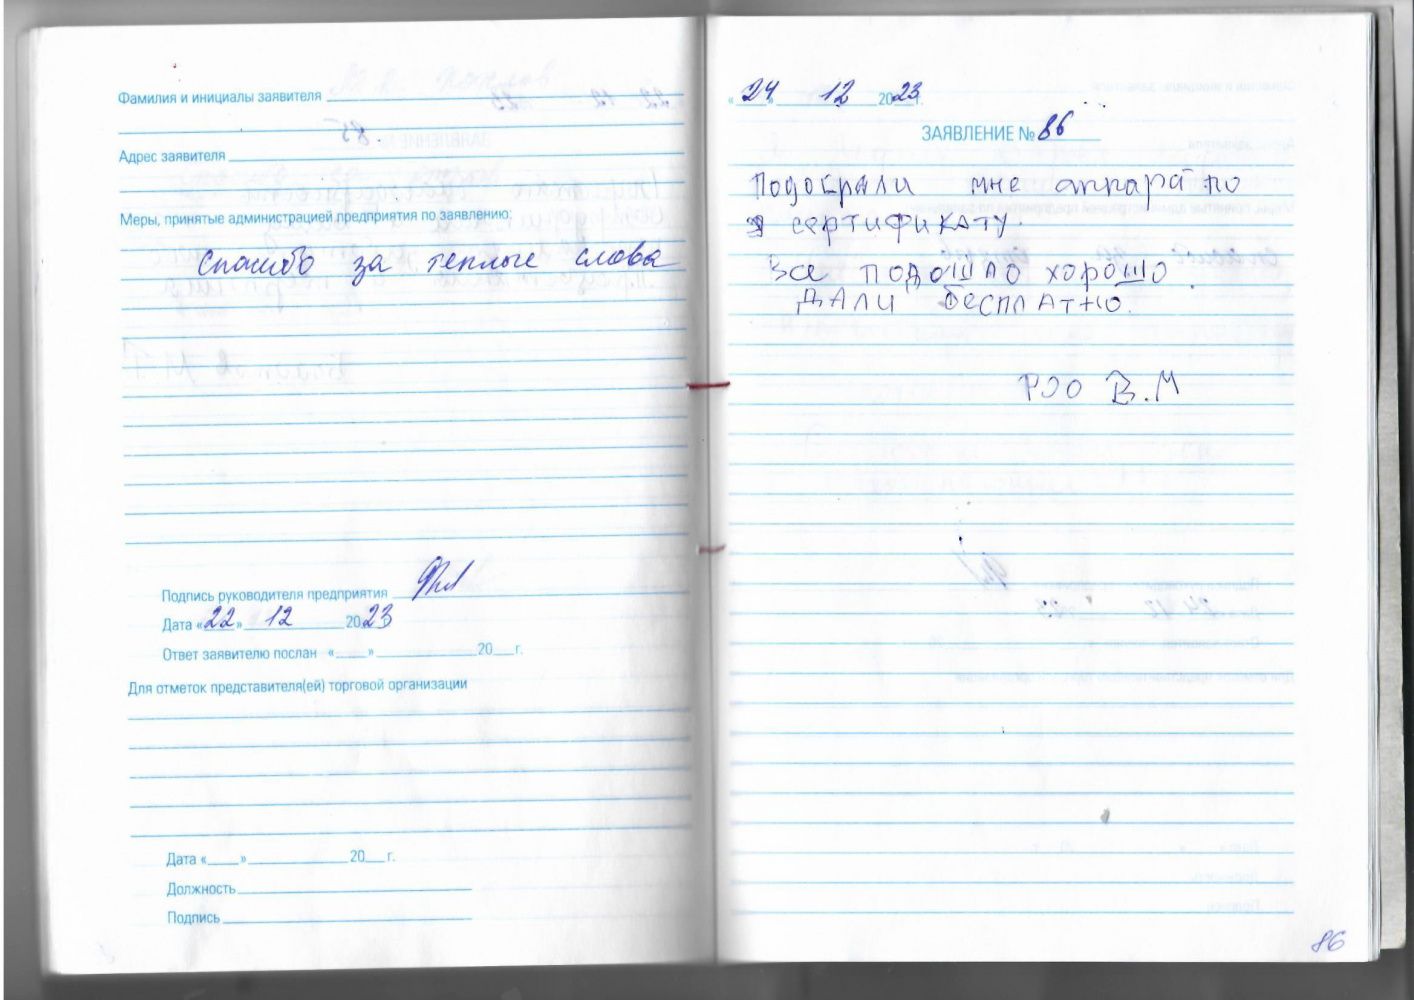 Фамилия и инициалы заявителя
Адрес заявителя
Меры, принятые администрацией предприятия по заявлению:
Спасибо за теплые слова
Подпись руководителя предприятия
Дата «22» 12 2023
Ответ заявителю послан «__» 20__г.
Для отметок представителя(ей) торговой организации
Дата «__» 20__г.
Должность
Подпись
«24» 12 2023г.
ЗАЯВЛЕНИЕ № 86
Подобрали мне аппарат по
сертификату.
Все подошло хорошо.
Дали бесплатно.
В.М
86